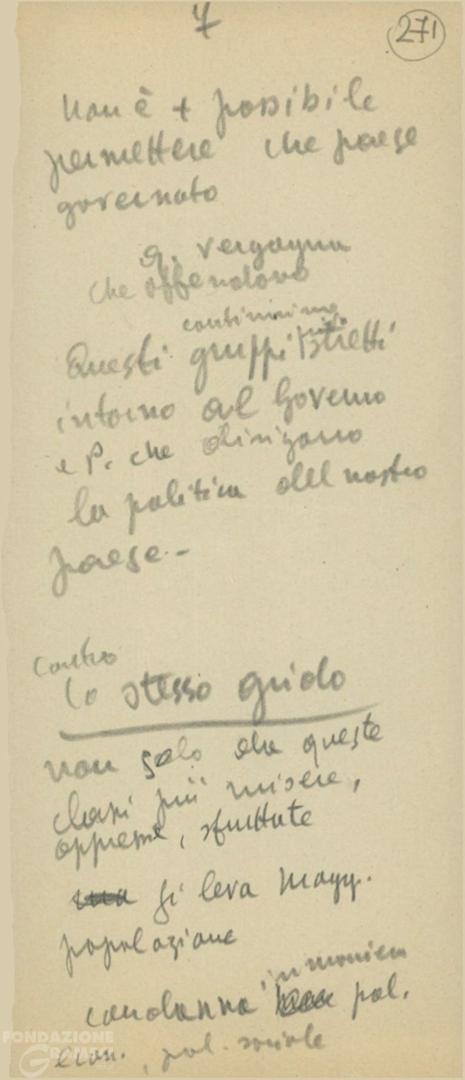 7
271
Non è + possibile
permettere che paese
governato
che offendono
Questi gruppi stretti
intorno al Governo
e P. che dirigono
la politica del nostro
paese -
Contro
lo stesso grido
non solo da queste
classi più misere,
oppresse, sfruttate
si leva magg.
popolazione
condanna in maniera pol.
econ., pol. sociale
FONDAZIONE
GRAMSCI